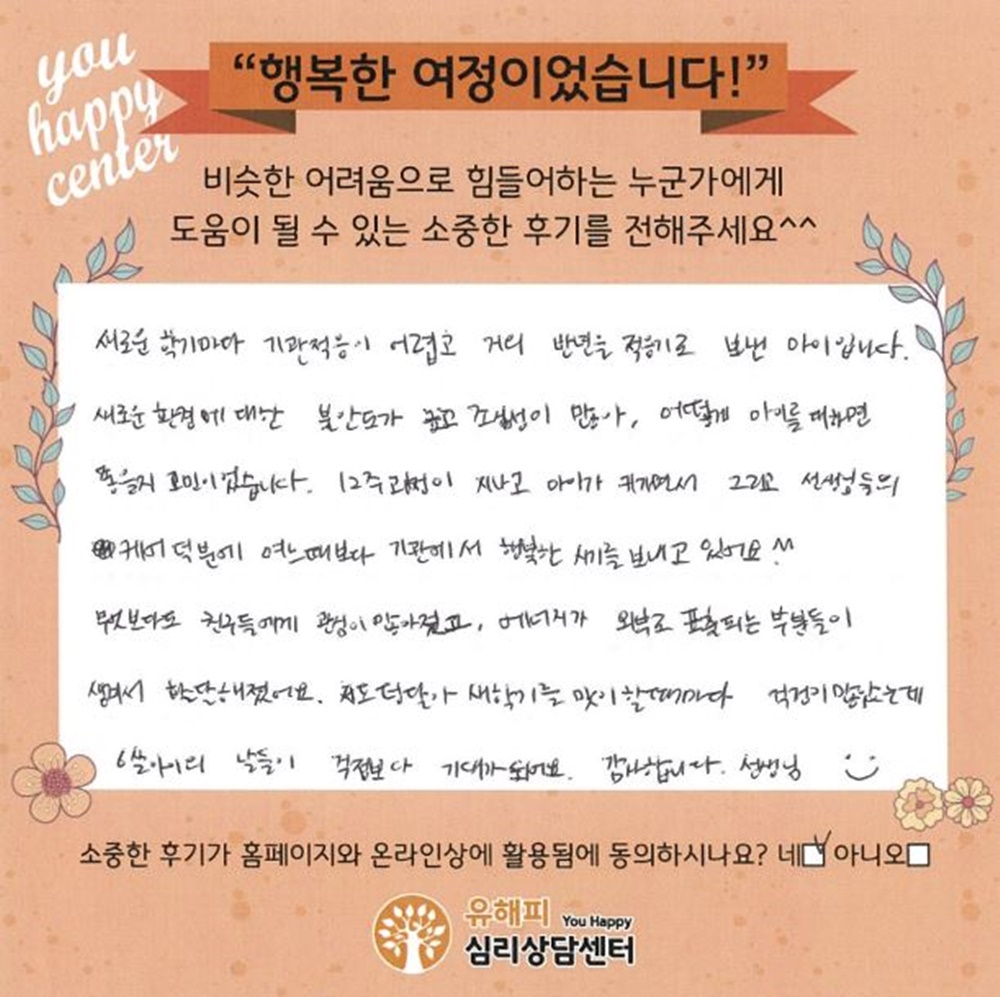 you
happy
center
“행복한 여정이었습니다!”
비슷한 어려움으로 힘들어하는 누군가에게
도움이 될 수 있는 소중한 후기를 전해주세요^^
새로운 학기마다 기관적응이 어렵고 거의 반년을 적응기로 보낸 아이입니다.
새로운 환경에 대한 불안도가 높고 조심성이 많아, 어떻게 아이를 대하면
좋을지 고민이었습니다. 12주과정이 지나고 아이가 커가면서 그리고 선생님들의
케어 덕분에 여느때보다 기관에서 행복한 시기를 보내고 있어요^^
무엇보다도 친구들에게 관심이 많아졌고, 에너지가 외부로 표출되는 부분들이
생겨서 한결해졌어요. 저도 덩달아 새학기를 맞이할때마다 걱정이 많았는데
6살아이의 날들이 걱정보다 기대가 되어요. 감사합니다. 선생님
소중한 후기가 홈페이지와 온라인상에 활용됨에 동의하시나요? 네 아니오
유해피 You Happy
심리상담센터